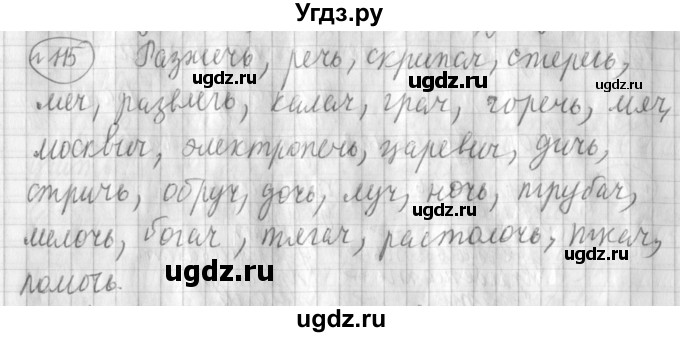 Угдз.ру
№115 Разжечь, речь, скрипач, стеречь,
ugdz.ru ugdz.ru
меч, развлечь, калач, грач, горечь, мяч,
ugdz.ru
москвич, электропечь, царевич, дичь,
стричь, обруч, дочь, луч, ночь, трубач,
ugdz.ru
мелочь, богач, тягач, растолочь, ткач,
помочь.
ugdz.ru ugdz.ru
ugdz.ru